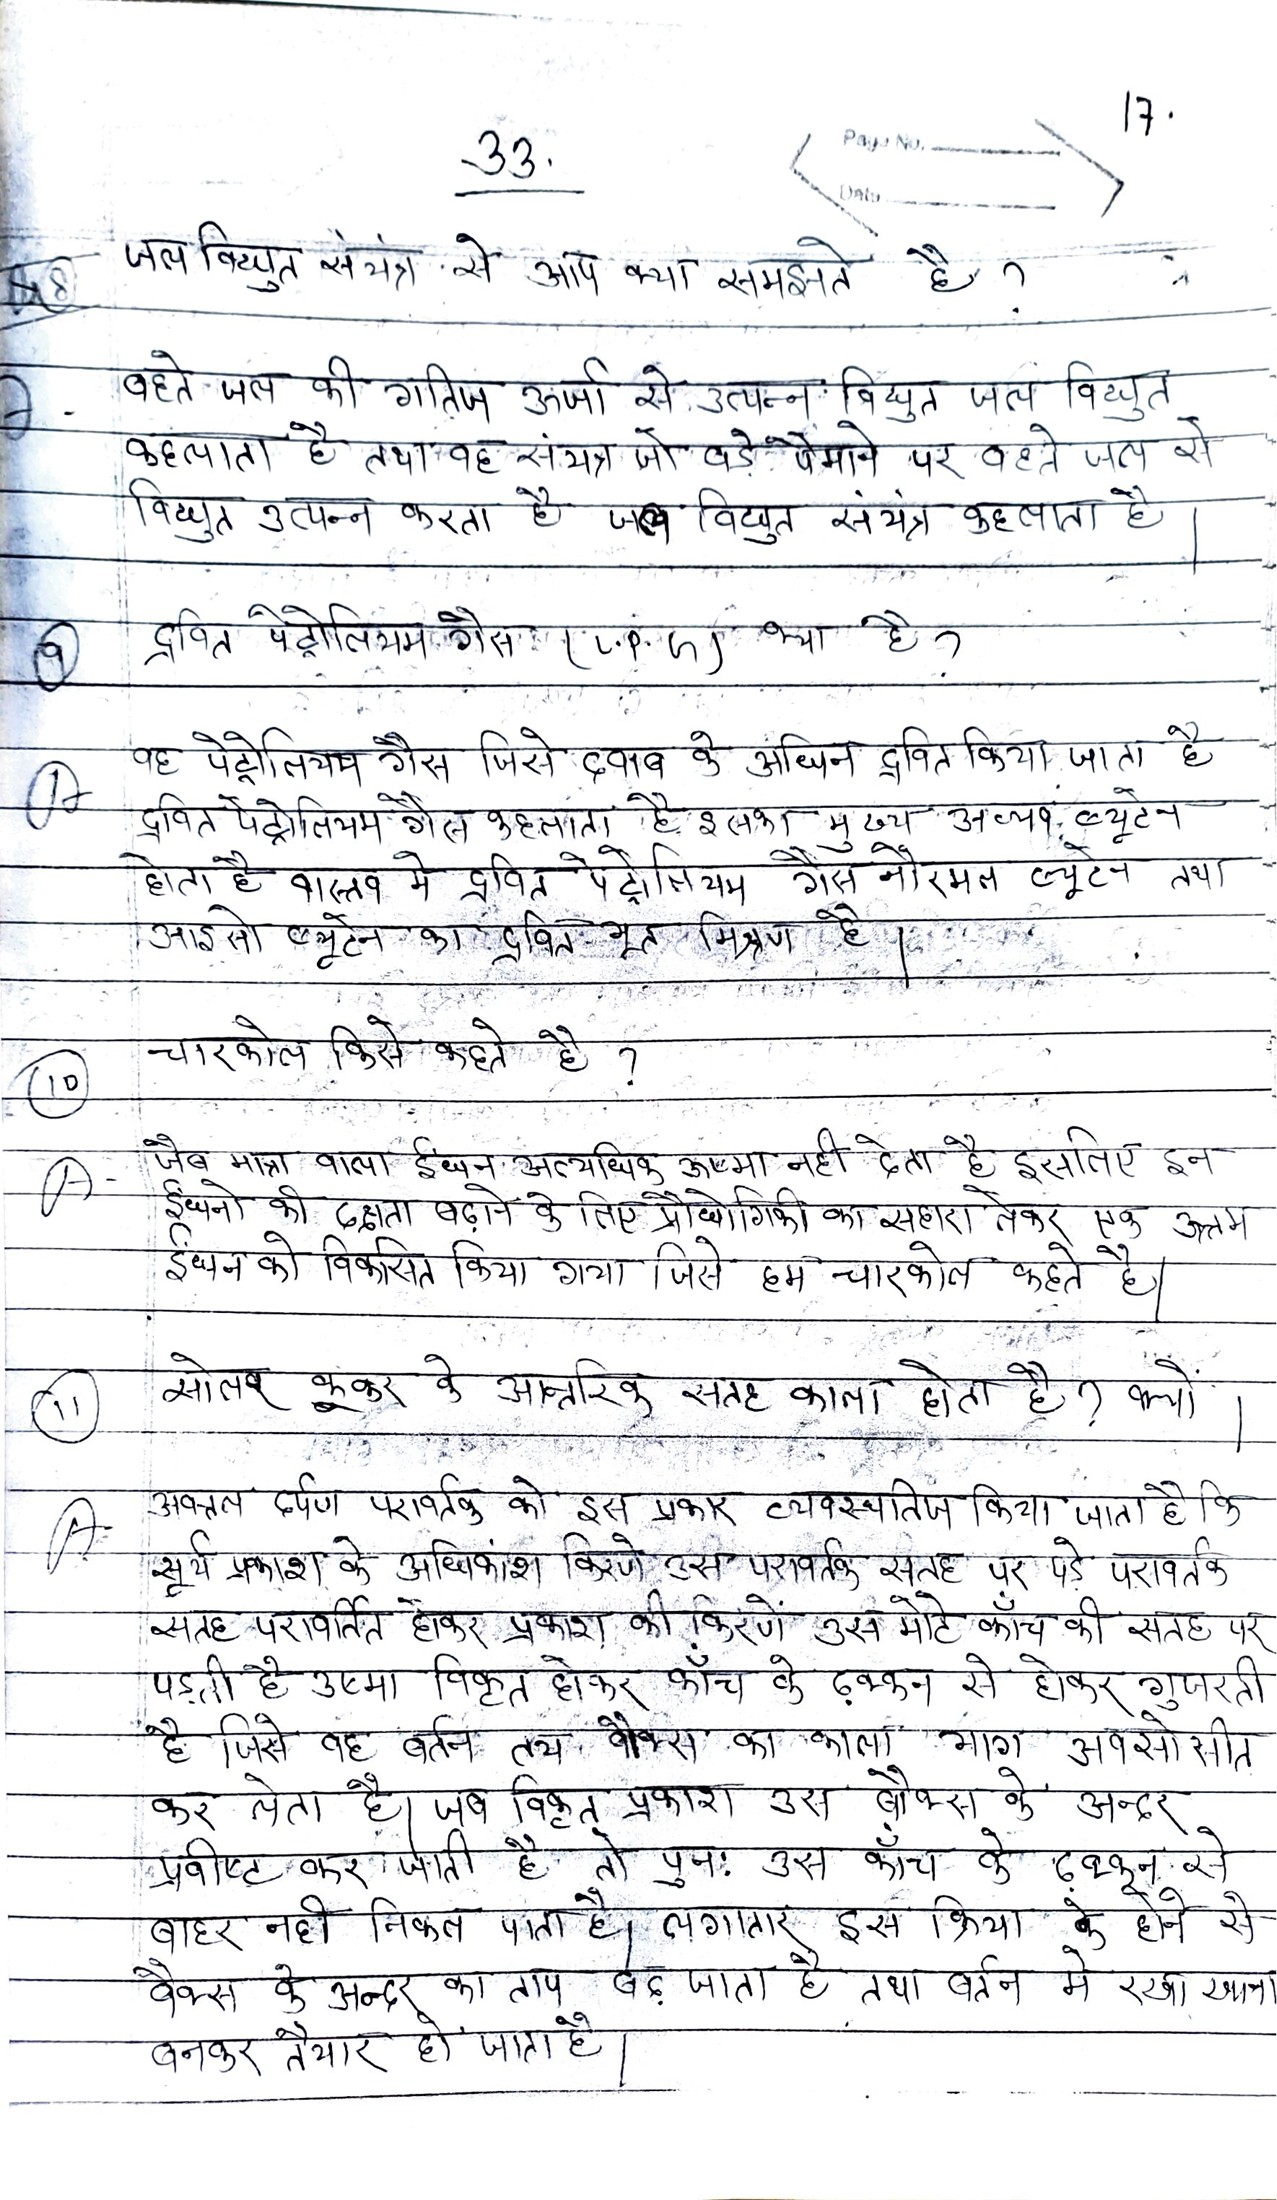 17.
33.
Page No.
Date
8 जल विद्युत संयंत्र से आप क्या समझते है ?
बहते जल की गतिज ऊर्जा से उत्पन्न विद्युत जल विद्युत
कहलाता है तथा वह संयंत्र जो बड़े पैमाने पर बहते जल से
विद्युत उत्पन्न करता है जल विद्युत संयंत्र कहलाता है|
9 द्रवित पेट्रोलियम गैस (L.P.G) क्या है ?
A वह पेट्रोलियम गैस जिसे दवाब के अधिन द्रवित किया जाता है
द्रवित पेट्रोलियम गैस कहलाता है इसका मुख्य अव्यव ब्यूटेन
होता है वास्तव मे द्रवित पेट्रोलियम गैस नौरमल ब्यूटेन तथा
आइसो ब्यूटेन का द्रवित भूत मिश्रण है|
10 चारकोल किसे कहते है ?
A- जैव मात्रा वाला ईंधन अत्यधिक ऊष्मा नही देता है इसलिए इन
ईंधनो की दक्षता बढ़ाने के लिए प्रौधोगिकी का सहारा लेकर एक उत्तम
ईंधन को विकसित किया गया जिसे हम चारकोल कहते है|
11 सोलर कूकर के आन्तरिक सतह काला होता है ? क्यों |
A- अवतल दर्पण परावर्तक को इस प्रकार व्यवस्थतिज किया जाता है कि
सूर्य प्रकाश के अधिकांश किरणे उस परावर्तक सतह पर पड़े परावर्तक
सतह परावर्तित होकर प्रकाश की किरणें उस मोटे काँच की सतह पर
पड़ती है उष्मा विकृत होकर काँच के ढ़क्कन से होकर गुजरती
है जिसे वह बर्तन तथ बौक्स का काला भाग अवसोसीत
कर लेता है| जब विकृत प्रकाश उस बौक्स के अन्दर
प्रवीष्ट कर जाती है तो पुनः उस काँच के ढ़क्कन से
बाहर नही निकल पाता है| लगातार इस क्रिया के होने से
बैक्स के अन्दर का ताप बढ़ जाता है तथा बर्तन मे रखा खाना
बनकर तैयार हो जाता है|